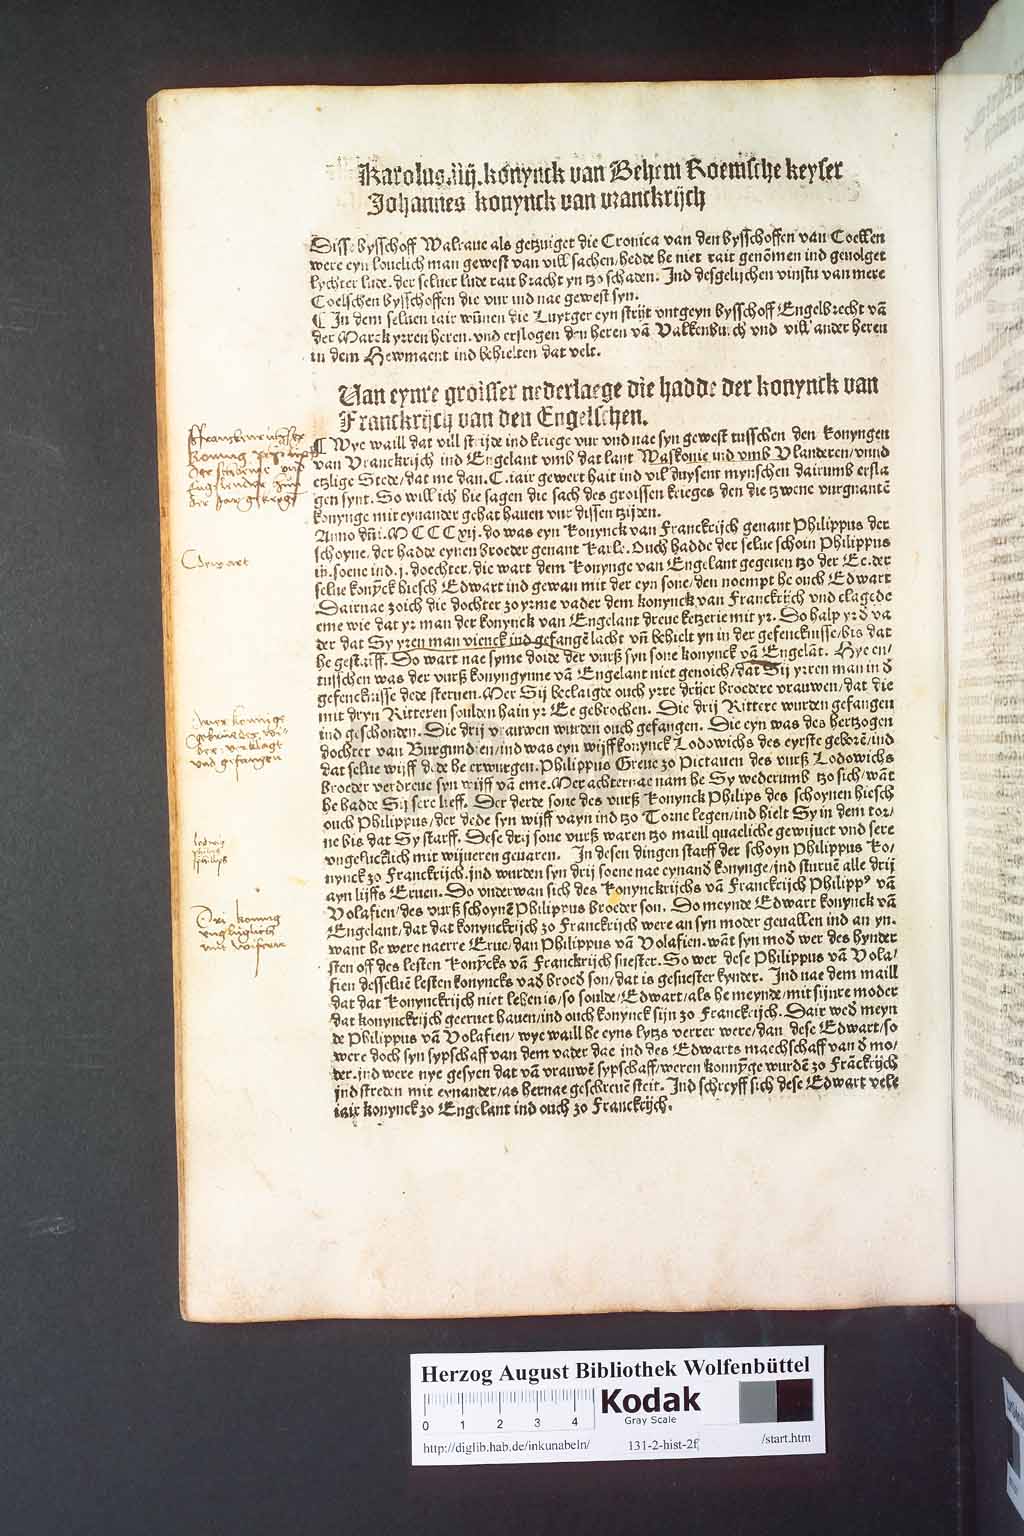 Karolus.iiij.konynck van Behem Roemsche keyser
Johannes konynck van vranckrijch
Disse bysschoff Walraue als getzuiget die Cronica van den bysschoffen van Coellen
were eyn louelich man gewest van vill sachen/hedde he niet rait genōmen ind geuolget
lychter lude. der seluer lude rait bracht yn tzo schaden. Ind desgelijchen vinstu van mere
Coelschen bysschoffen die vur ind nae gewest syn.
¶ In dem seluen iair wūnen die Luytger eyn strijt vntgeyn bysschoff Engelbrecht vā
der Marck yrren heren. vnd erslogen den heren vā Valkenburch vnd vill ander heren
in dem Hewmaent ind behielten dat velt.
Van eynre groisser nederlaege die hadde der konynck van
Franckrijch van den Engelschen.
¶ Wye waill dat vill strijde ind kriege vur vnd nae syn gewest tusschen den konyngen
van Vranckrijch ind Engelant vmb dat lant Waskonie ind vmb Vlanderen/vnnd
etzlige Stede/dat me dan. C. iair gewert hait ind vil duysent mynschen dairumb ersla
gen synt. So will ich hie sagen die sach des groissen krieges den die tzwene vurgnantē
konynge mit eynander gehat hauen vur dissen tzijden.
Anno dn̄i. M CCC xij. do was eyn Konynck van Franckrijch genant Philippus der
schoyne. der hadde eynen broeder genant Karle. Ouch hadde der selue schoin Philippus
iij. soene ind. j. doechter. die wart dem Konynge van Engelant gegeuen tzo der Ee. der
selue konȳck hiesch Edwart ind gewan mit der eyn sone/den noempt he ouch Edwart
Dairnae zoich die dochter zo yrme vader dem konynck van Franckrijch vnd clagede
eme wie dat yr man der konynck van Engelant dreue ketzerie mit yr. Do halp yr d̄ va
der dat Sy yren man vienck ind gefangē lacht vn̄ behielt yn in der gefencknisse/bis dat
he gestarff. Do wart nae syme doide der vurß syn sone konynck vā Engelāt. Hye en/
tusschen was der vurß konyngynne vā Engelant niet genoich/dat Sij yrren man in d̄
gefencknisse dede steruen. Mer Sij beclaigde ouch yrre drijer broedere vrauwen/dat die
mit dryn Ritteren soulden hain yr Ee gebrochen. Die drij Rittere wurden gefangen
ind geschonden. Die drij vrauwen wurden ouch gefangen. Die eyn was des hertzogen
dochter van Burgundien/ind was eyn wijff konynck Lodowichs des eyrste geborē/ind
dat selue wijff dede he erwurgen. Philippus Greue zo Pictauen des vurß Lodowichs
broeder verdreue syn wijff vā eme. Mer achternae nam he Sy wederumb tzo sich/wāt
he hadde Sij sere lieff. Der derde sone des vurß Konynck Philips des schoynen hiesch
ouch Philippus/der dede syn wijff vayn ind tzo Torne legen/ind hielt Sy in dem tor/
ne bis dat Sy starff. Dese drij sone vurß waren tzo maill quaeliche gewijuet vnd sere
vngelucklich mit wijueren geuaren. In desen dingen starff der schoyn Philippus Ko/
nynck zo Franckrijch. ind wurden syn drij soene nae eynand̄ konynge/ind sturuē alle drij
ayn lijffs Eruen. Do vnderwan sich des Konynckrijchs vā Franckrijch Philippꝰ vā
Volasien/des vurß schoynē Philippus broeder son. Do meynde Edwart konynck vā
Engelant/dat dat konynckrijch zo Franckrijch were an syn moder geuallen ind an yn.
want he were naerre Erue/dan Philippus vā Volasien. wāt syn mod̄ wer des hynder
sten off des lesten Konȳcks vā Franckrijch suester. So wer dese Philippus vā Vola/
sien desseluē lesten konyncks vad̄ broed̄ son/dat is gesuester kynder. Ind nae dem maill
dat dat Konynckrijch niet lehen is/so soulde/Edwart/als he meynde/mit sijnre moder
dat konynckrijch geeruet hauen/ind ouch konynck sijn zo Franckrijch. Dair wed̄ meyn
de Philippus vā Volasien/wye waill he eyns lytzs verrer were/dan dese Edwart/so
were doch syn sypschaff van dem vader dae ind des Edwarts maechschaff van d̄ mo/
der. ind were nye gesyen dat vā vrauwē sypschaff/weren konnȳge wurdē zo Frāckrijch
ind streden mit eynander/as hernae geschreuē steit. Ind schreyff sich dese Edwart vele
iair konynck zo Engelant ind ouch zo Franckrijch.
Dri konnig
Herzog August Bibliothek Wolfenbüttel
0 1 2 3 4
Kodak
Gray Scale
http://diglib.hab.de/inkunabeln/ 131-2-hist-2f /start.htm